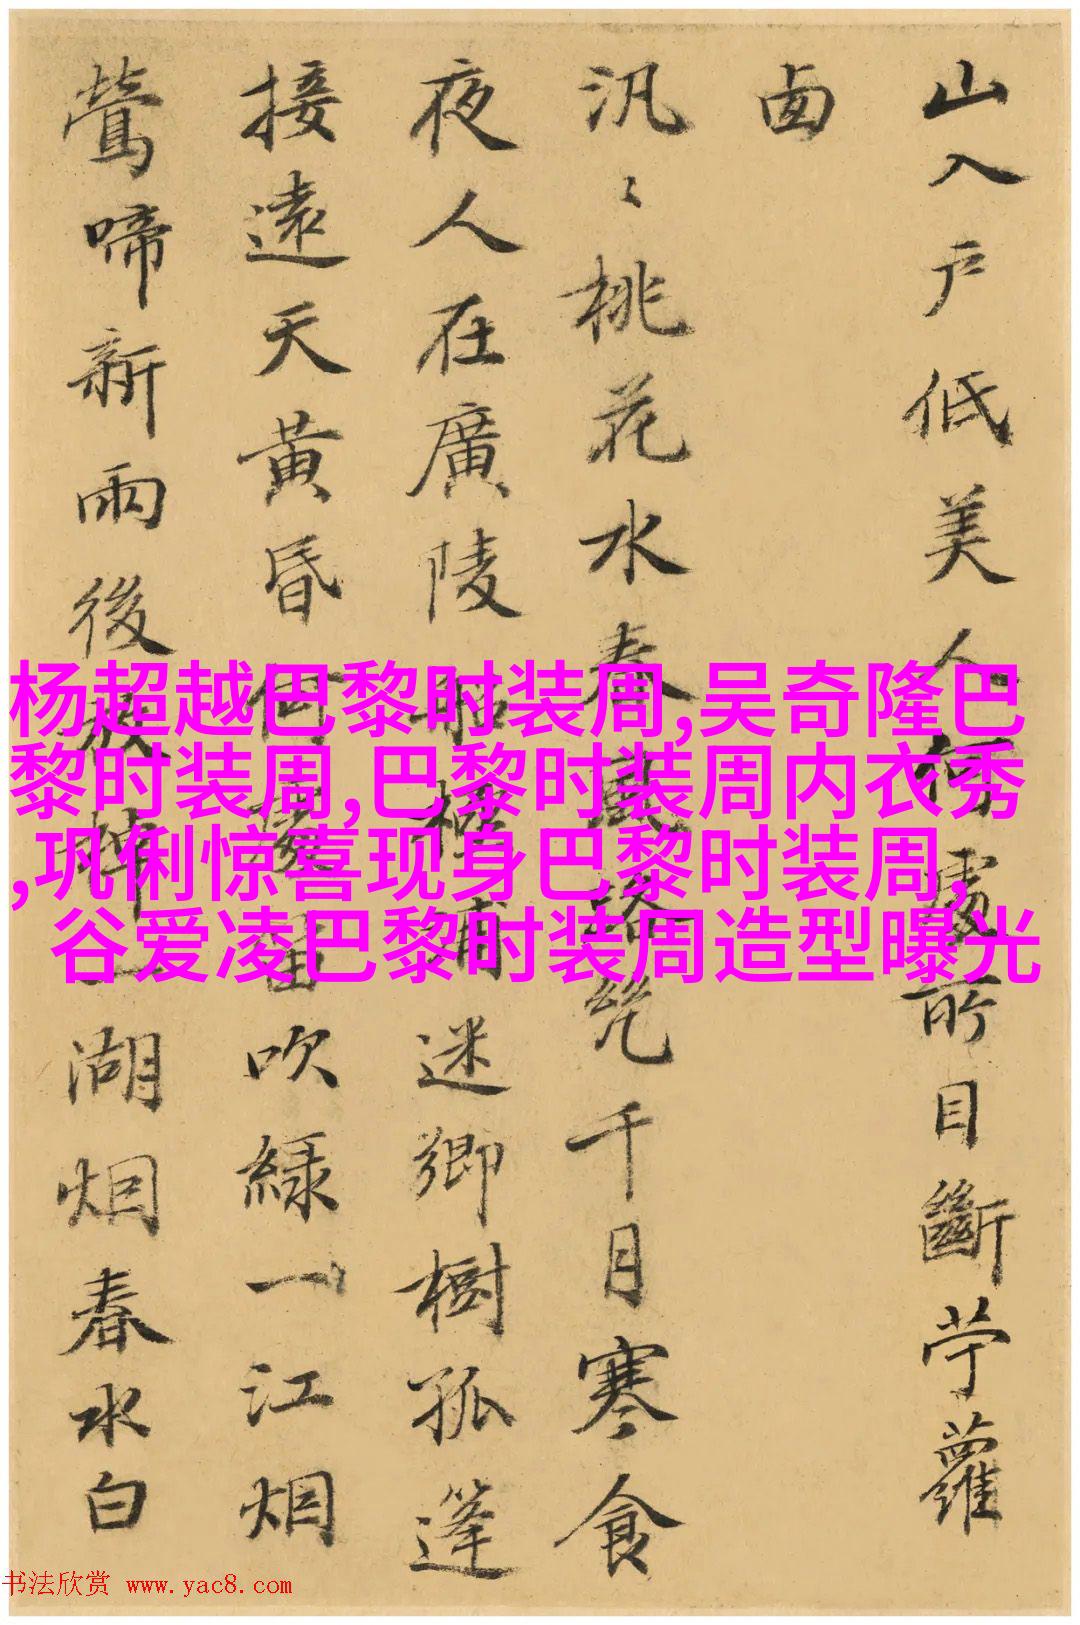 山入戶低美人何處所目斷苧蘿
鹵
汎〻桃花水春風路
千月寒食
夜人在廣陵
迷鄉樹孤篷
接遠天黃昏何處笛吹綠一江烟
鶯啼新雨後
一湖烟春水白
杨超越巴黎时装周,吴奇隆巴
黎时装周,巴黎时装周内衣秀
,巩俐惊喜现身巴黎时装周,
谷爱凌巴黎时装周造型曝光
书法欣赏 www.yac8.com